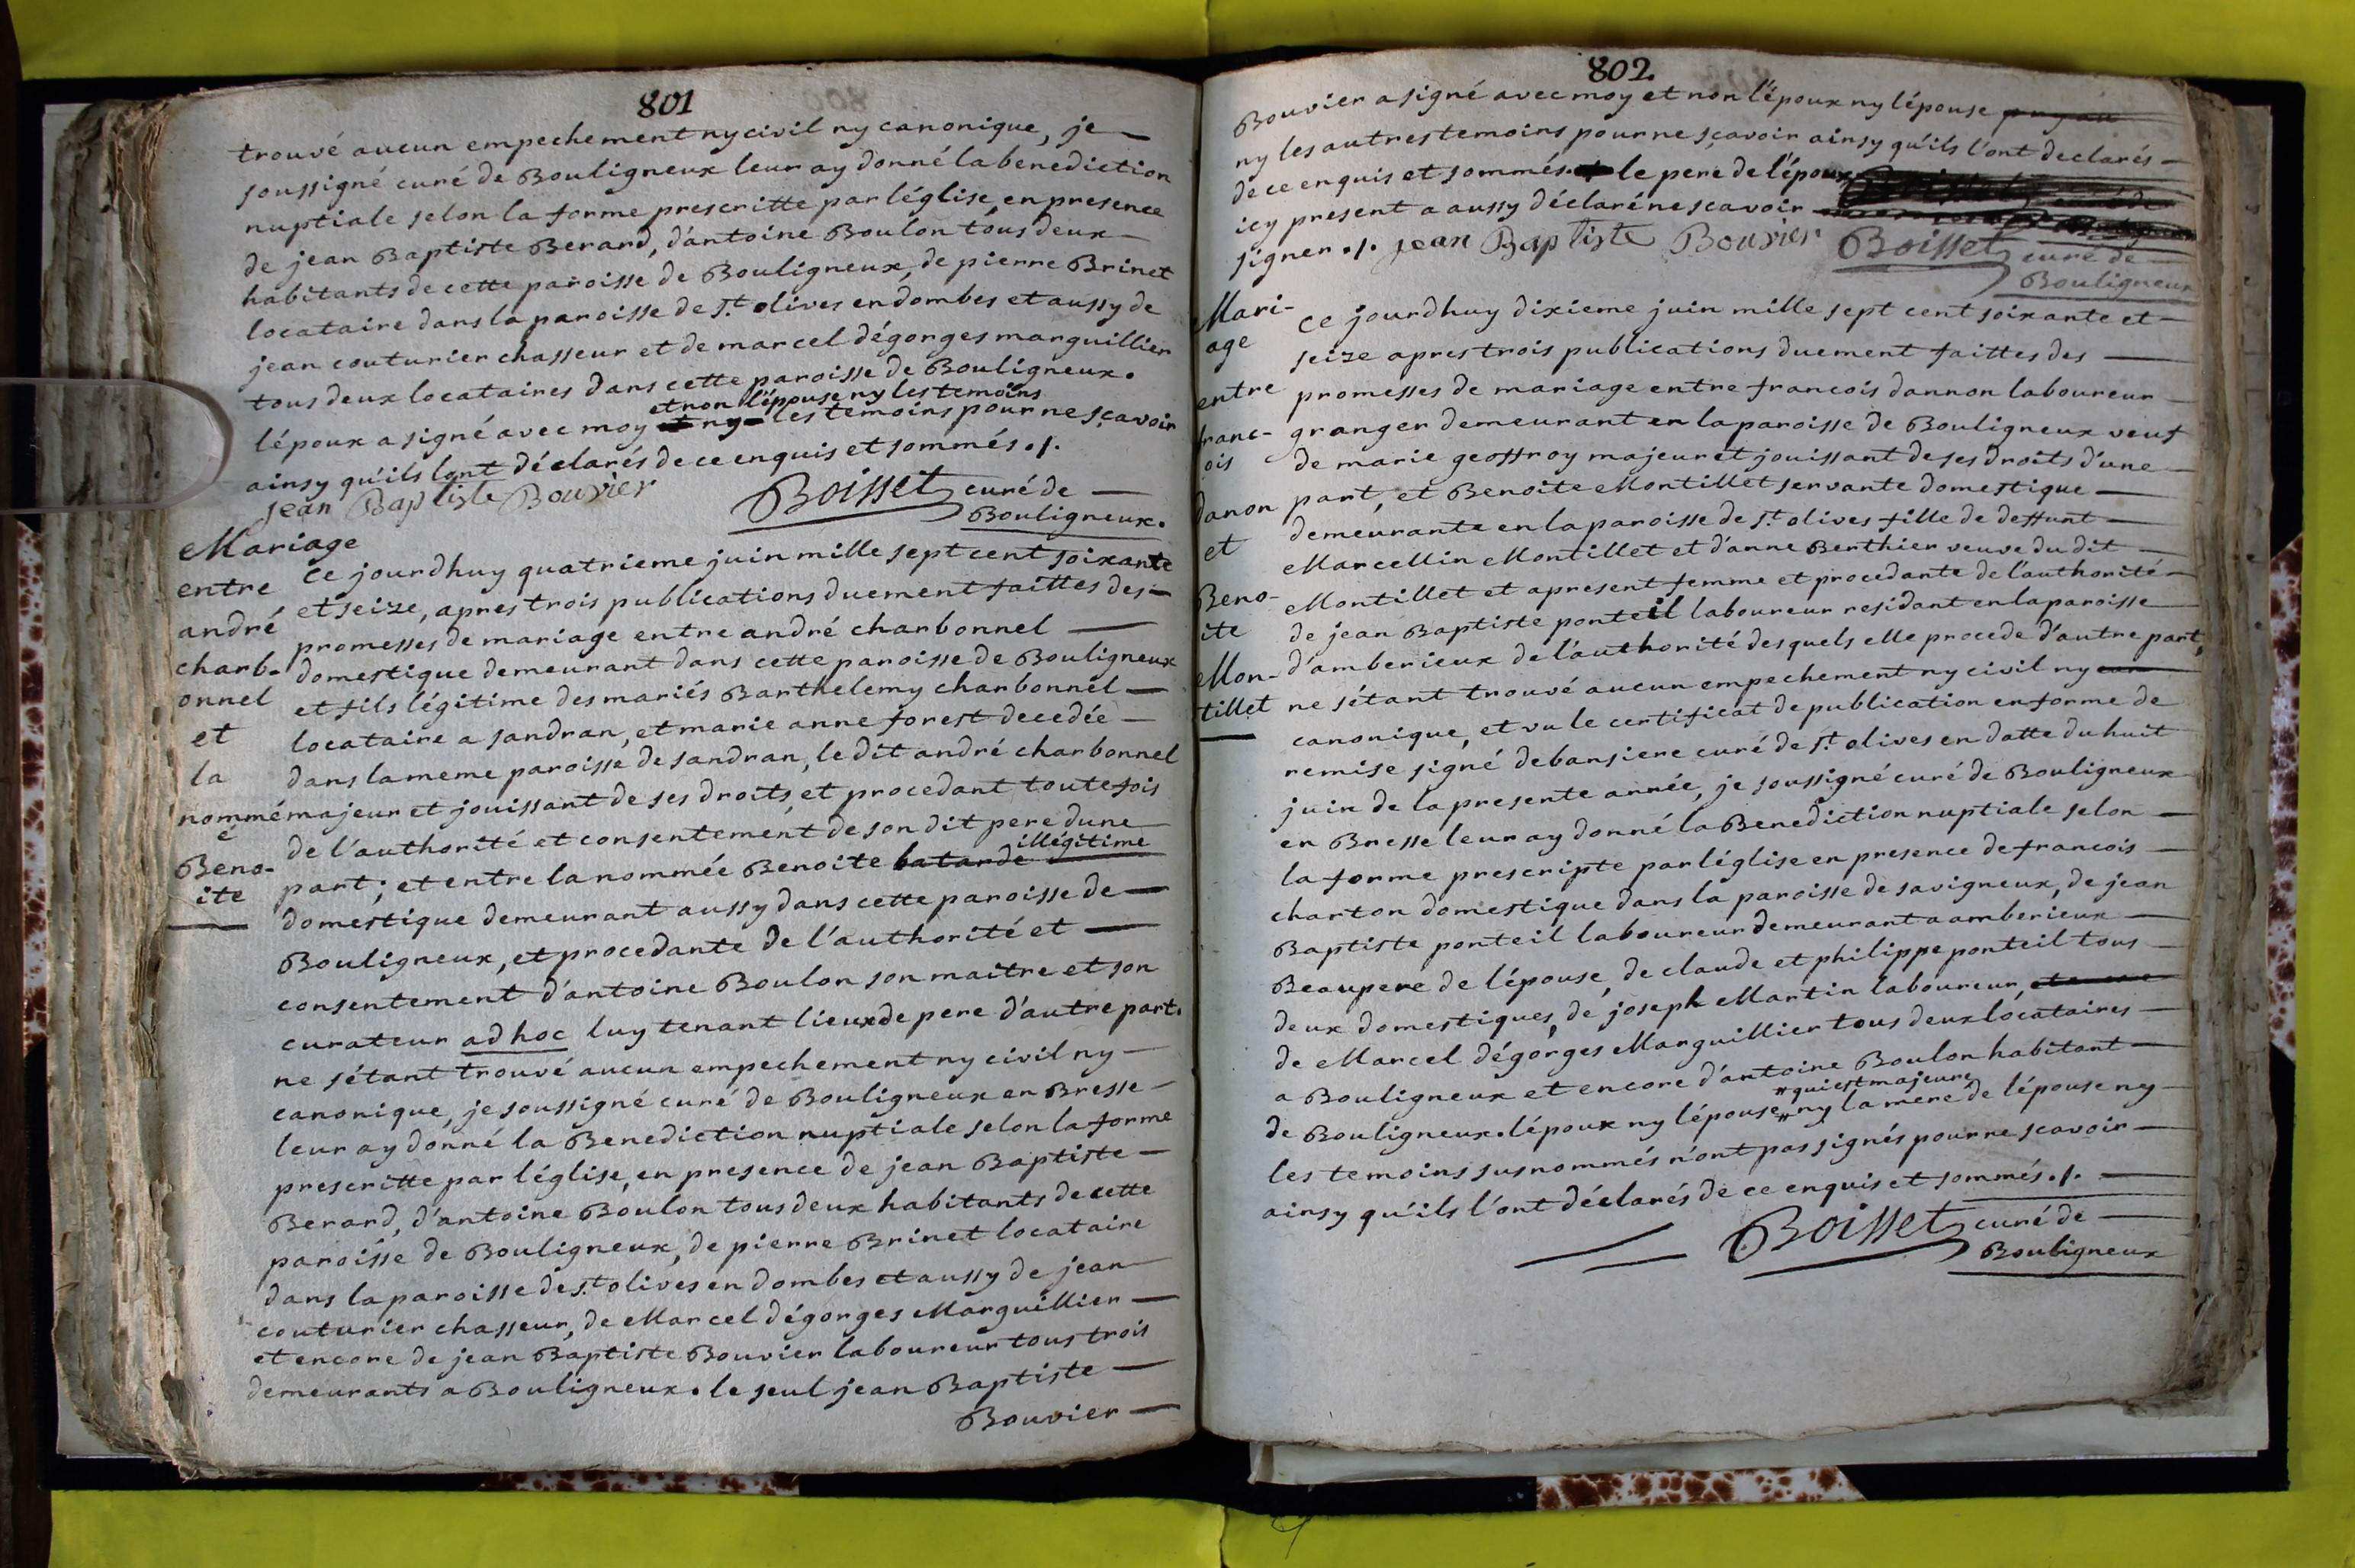 801
trouvé aucun empechement ny civil ny canonique, je
soussigné curé de Bouligneux leur ay donné la benediction
nuptiale selon la forme prescritte par léglise, en presence
de jean Baptiste Berard, d'antoine Boulon tous deux
habitants de cette paroisse de Bouligneux, de pierre Brinet
locataire dans la paroisse de St. olives en dombes et aussy de
jean couturier chasseur et de marcel dégorges marguillier
tous deux locataires dans cette paroisse de Bouligneux.
et non l'épouse ny les temoins
lépoux a signé avec moy et ny les temoins pour ne sçavoir
ainsy qu'ils lont déclarés de ce enquis et sommés ./.
jean Baptiste Bouvier Boisset curé de
Bouligneux.
Mariage
entre
andré
charb-
onnel
et
la
nommé
e
Beno-
ite
ce jourdhuy quatrieme juin mille sept cent soixante
et seize, apres trois publications duement faittes des
promesses de mariage entre andré charbonnel
domestique demeurant dans cette paroisse de Bouligneux
et fils légitime des mariés Barthelemy charbonnel
locataire a sandran, et marie anne forest decedée
dans la meme paroisse de sandran, le dit andré charbonnel
majeur et jouissant de ses droits, et procedant toutefois
de l'authorité et consentement de son dit pere dune
illégitime
part; et entre la nommée Benoite batarde
domestique demeurant aussy dans cette paroisse de
Bouligneux, et procedante de l'authorité et
consentement d'antoine Boulon son maitre et son
curateur ad hoc luy tenant lieux de pere d'autre part.
ne s'étant trouvé aucun empechement ny civil ny
canonique, je soussigné curé de Bouligneux en Bresse
leur ay donné la Benediction nuptiale selon la forme
prescritte par léglise, en presence de jean Baptiste
Berard, d'antoine Boulon tous deux habitants de cette
paroisse de Bouligneux, de pierre Brinet locataire
dans la paroisse de St. olives en dombes et aussy de jean
couturier chasseur, de Marcel dégorges Marguillier
et encore de jean Baptiste Bouvier laboureur tous trois
demeurants a Bouligneux. le seul jean Baptiste
Bouvier
802.
Bouvier a signé avec moy et non l'époux ny lépouse
ny les autres temoins pour ne sçavoir ainsy qu'ils l'ont declarés
de ce enquis et sommés. le pere de l'époux
icy present a aussy déclaré ne scavoir
signer ./. jean Baptiste Bouvier Boisset curé de
Bouligneux
Mari-
age
entre
franc-
ois
danon
et
Beno-
ite
Mon-
tillet
ce jourdhuy dixieme juin mille sept cent soixante et
seize apres trois publications duement faittes des
promesses de mariage entre francois dannon laboureur
granger demeurant en la paroisse de Bouligneux veuf
de marie geoffroy majeur et jouissant de ses droits d'une
part, et Benoite Montillet servante domestique
demeurante en la paroisse de St. olives fille de deffunt
Marcellin Montillet et d'anne Berthier veuve du dit
Montillet et apresent femme et procedante de l'authorité
de jean Baptiste ponteil laboureur residant en la paroisse
d'amberieux de l'authorité desquels elle procede d'autre part,
ne s'étant trouvé aucun empechement ny civil ny can
canonique, et vu le certificat de publication en forme de
remise signé debansiere curé de St. olives en datte du huit
juin de la presente année, je soussigné curé de Bouligneux
en Bresse leur ay donné la Benediction nuptiale selon
la forme prescripte par léglise en presence de francois
charton domestique dans la paroisse de savigneux, de jean
Baptiste ponteil laboureur demeurant a amberieux
Beaupere de lépouse, de claude et philippe ponteil tous
deux domestiques, de joseph Martin laboureur,
de Marcel dégorges Marguillier tous deux locataires
a Bouligneux et encore d'antoine Boulon habitant
# qui est majeure
de Bouligneux. lépoux ny lépouse # ny la mere de lépouse ny
les temoins susnommés n'ont pas signés pour ne scavoir
ainsy qu'ils l'ont déclarés de ce enquis et sommés ./.
Boisset curé de
Bouligneux